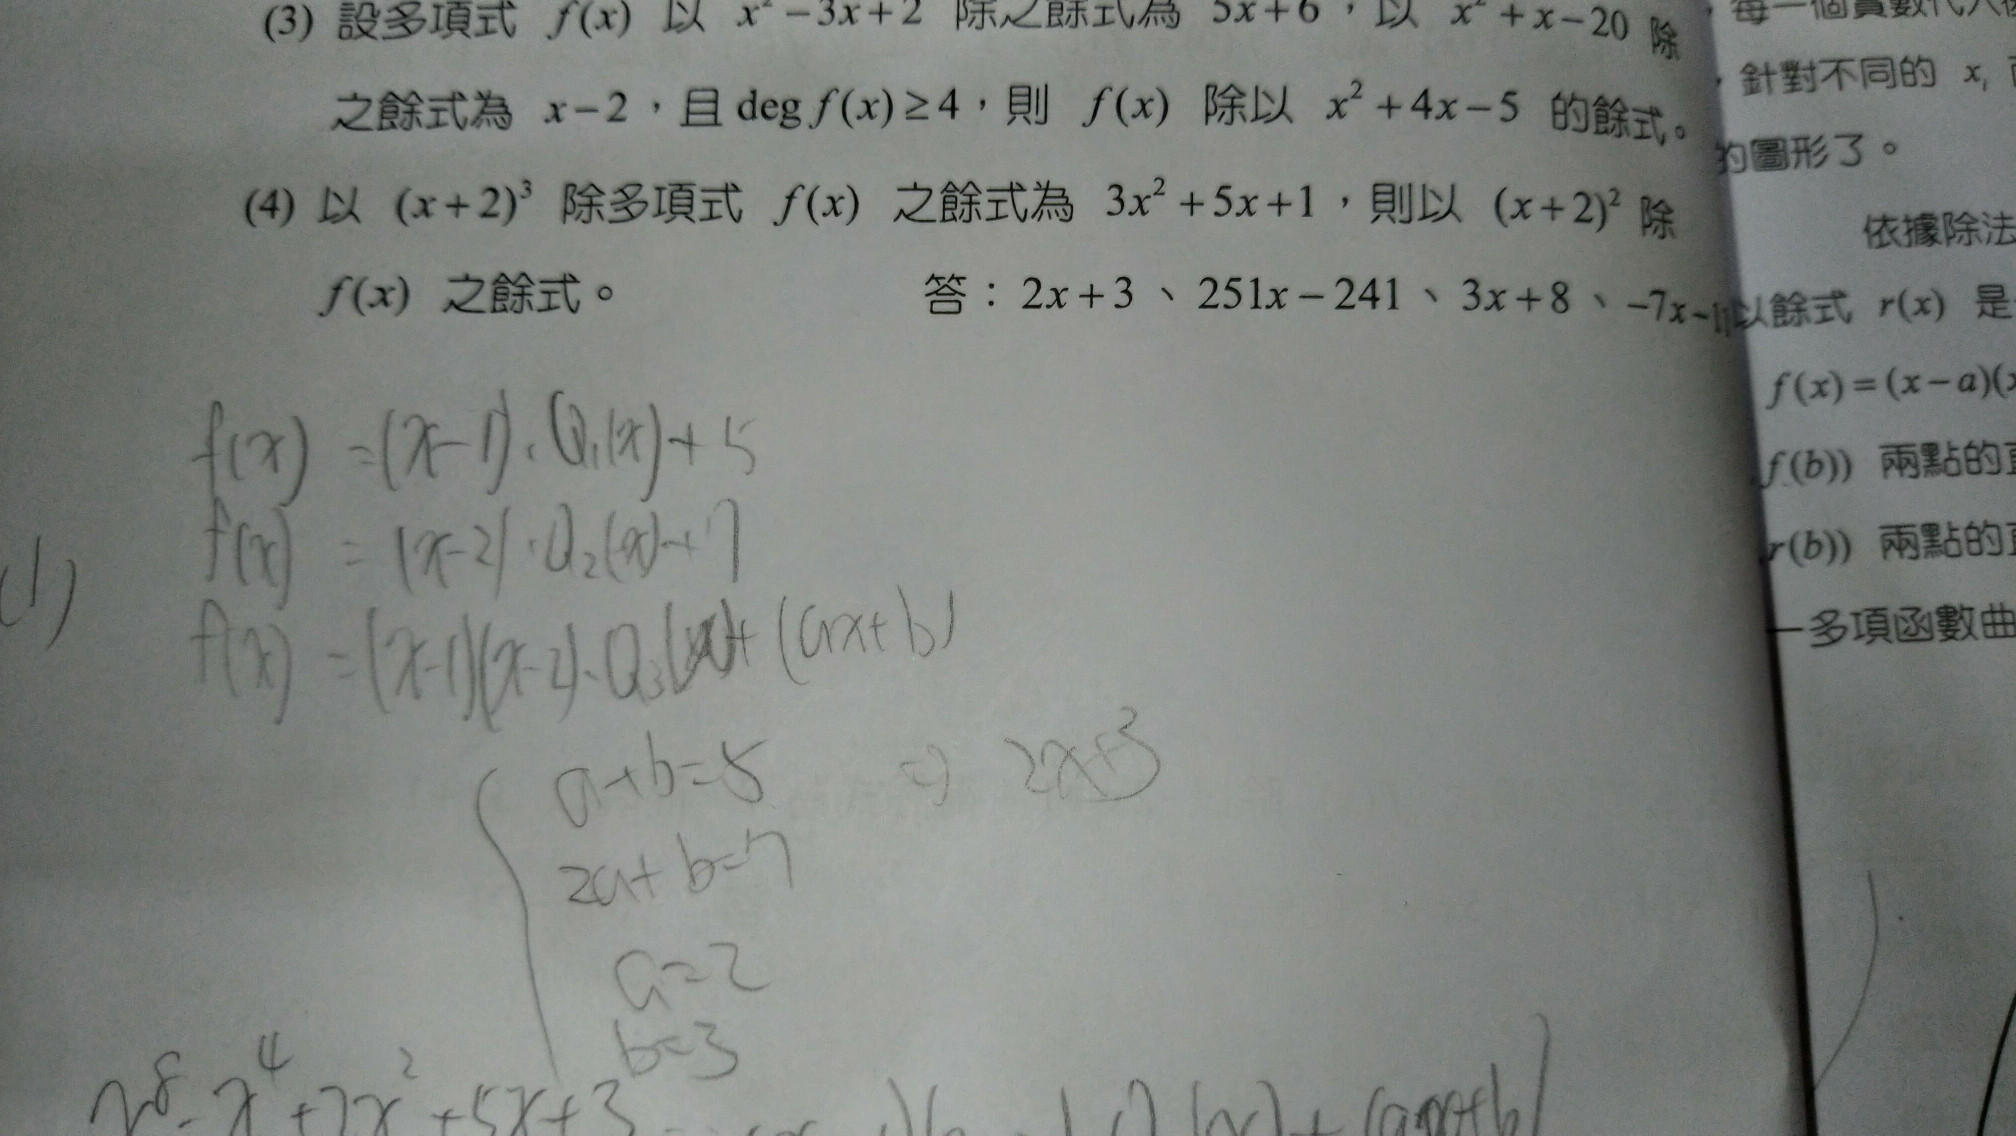 (3) 設多項式 f(x) 以 x² − 3x + 2 除之餘式為 5x + 6,以 x² + x − 20 除
之餘式為 x − 2,且 deg f(x) ≥ 4,則 f(x) 除以 x² + 4x − 5 的餘式。
(4) 以 (x + 2)³ 除多項式 f(x) 之餘式為 3x² + 5x + 1,則以 (x + 2)² 除
f(x) 之餘式。 答:2x + 3、251x − 241、3x + 8、−7x − 11
每一個實數代入
,針對不同的 xᵢ
的圖形了。
依據除法
以餘式 r(x) 是
f(x) = (x − a)(x
f(b)) 兩點的直
r(b)) 兩點的直
多項函數曲
(1)
f(x) = (x-1)·Q₁(x)+5
f(x) = (x-2)·Q₂(x)+7
f(x) = (x-1)(x-2)·Q₃(x)+(ax+b)
a+b=5 ⇒ 2x+3
2a+b=7
a=2
b=3
x⁸-x⁴+7x²+5x+3 = (ax+b)